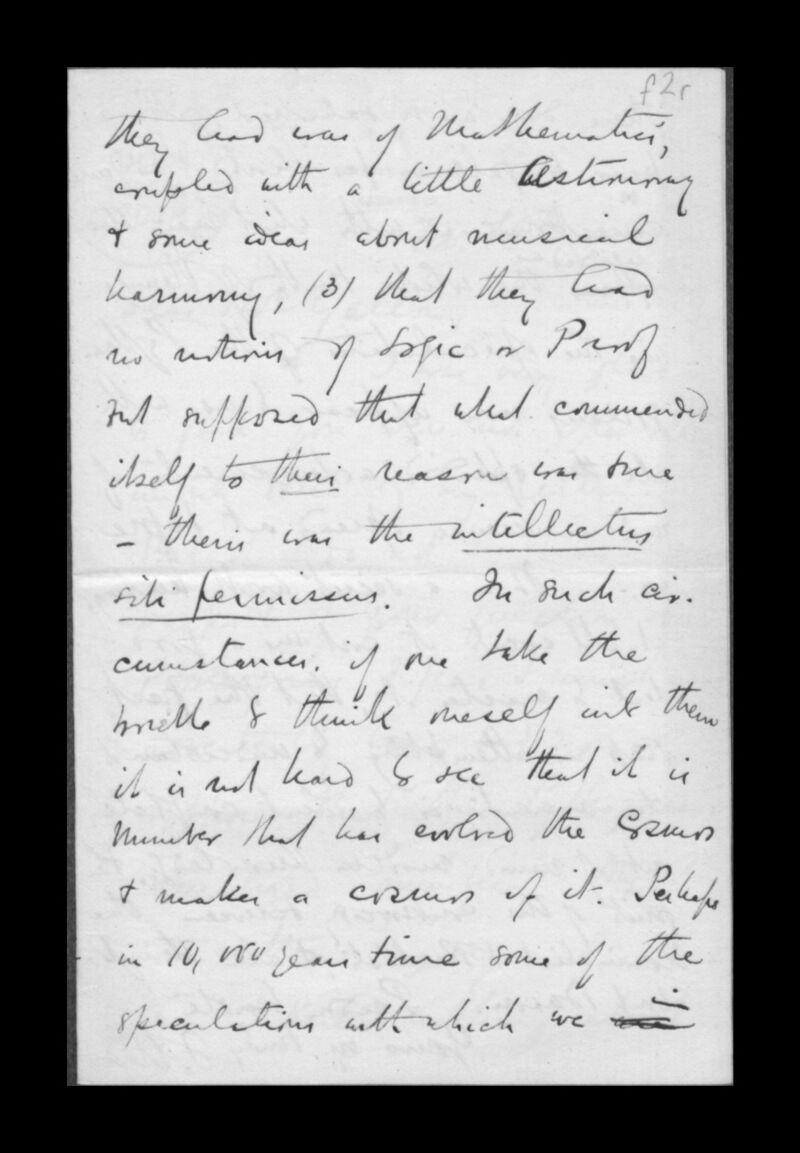 f2r
they had was of Mathematics,
coupled with a little Astronomy
& some ideas about musical
harmony, (3) that they had
no notions of Logic or Proof
but supposed that what commended
itself to their reason was true
- theirs was the intellectus
sibi permissus. In such cir-
cumstances. if one take the
trouble to think oneself into them
it is not hard to see that it is
Number that has evolved the Cosmos
& makes a cosmos of it. Perhaps
in 10,000 years time some of the
speculations with which we in